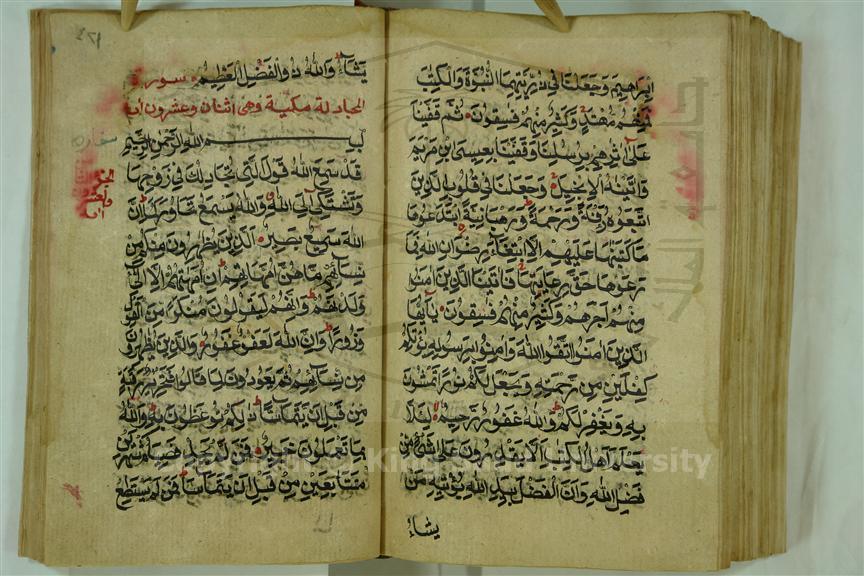 إبراهيم وجعلنا في ذريتهما النبوة والكتب
فمنهم مهتد وكثير منهم فسقون ثم قفينا
على اثرهم برسلنا وقفينا بعيسى ابن مريم
واتينه الإنجيل وجعلنا في قلوب الذين
اتبعوه رأفة ورحمة ورهبانية ابتدعوها
ما كتبنها عليهم الا ابتغاء رضوان الله فما
رعوها حق رعايتها فاتينا الذين امنوا
منهم اجرهم وكثير منهم فسقون يايها
الذين امنوا اتقوا الله وامنوا برسوله يؤتكم
كفلين من رحمته ويجعل لكم نورا تمشون
به ويغفر لكم والله غفور رحيم لئلا
يعلم اهل الكتب الا يقدرون على شيء من
فضل الله وان الفضل بيد الله يؤتيه من
يشاء
١٧٤
يشاء والله ذو الفضل العظيم سورة
المجادلة مكية وهي اثنان وعشرون آية
بسم الله الرحمن الرحيم
قد سمع الله قول التي تجادلك في زوجها
وتشتكي الى الله والله يسمع تحاوركما ان
الله سميع بصير الذين يظهرون منكم من
نسائهم ما هن امهاتهم ان امهتهم الا الئ
ولدنهم وانهم ليقولون منكرا من القول
وزورا وان الله لعفو غفور والذين يظهرون
من نسائهم ثم يعودون لما قالوا فتحرير رقبة
من قبل ان يتماسا ذلكم توعظون به والله
بما تعملون خبير فمن لم يجد فصيام شهرين
متتابعين من قبل ان يتماسا فمن لم يستطع
King University